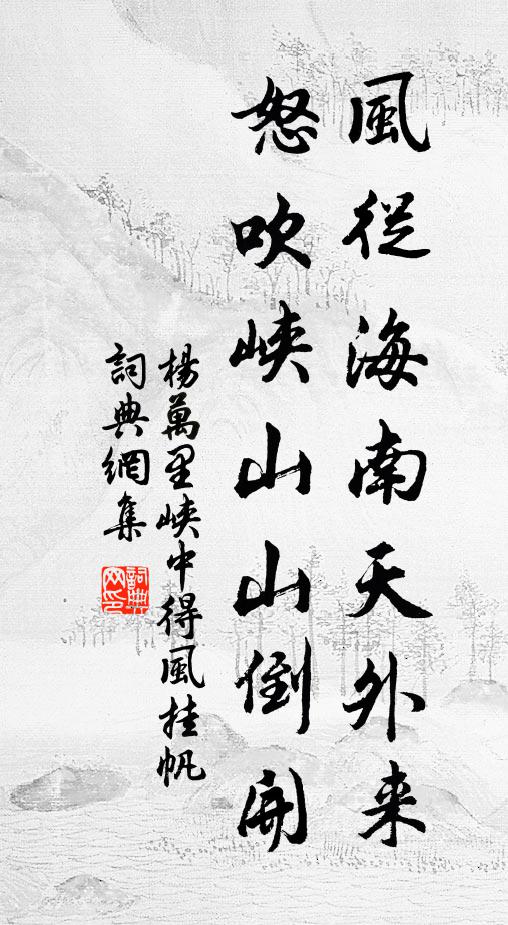 風從海南天外来
怒吹峽山山倒開
楊萬里峽中得風挂帆
詞典網集
詞典网印